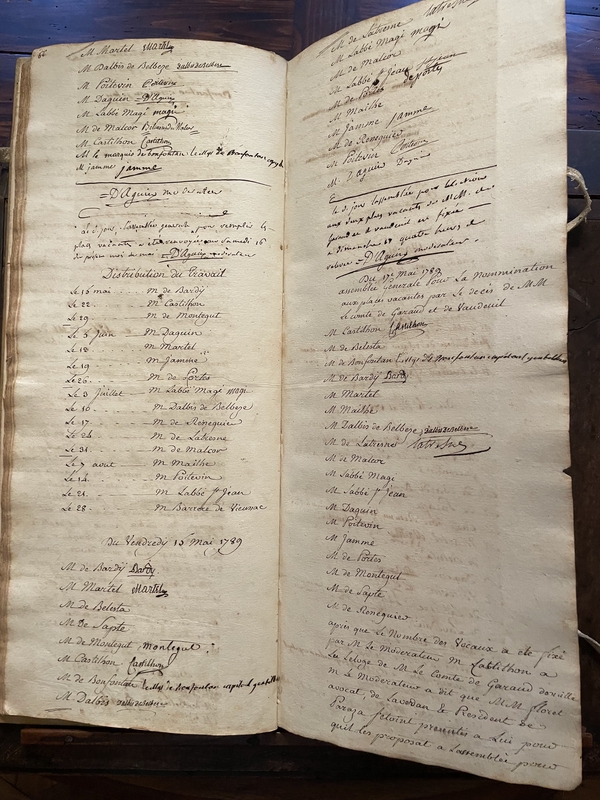 66
M Martel Martel
M Dalbis de Belbeze dalbisdebelbeze
M Poitevin Poitevin
M Daguin =D'Aguin
M Labbé Magi magi
M de Malcor Belmondu Malcor
M Castilhon Castilhon
M le marquis de bonfontan, le Mqs de Bonfontan
M jamme jamme
=D'Aguin moderateur
ce jour, l'assemblée generale pour remplir les
places vacantes
=D'Aguin moderateur
Distribution du Travail
Le 15 mai M de Bardy
Le 22 M Castilhon
Le 29 M de Montegut
Le 5 juin M Daguin
Le 18 M Martel
Le 19 M Jamme
Le 26 M de Portes
Le 3 Juillet M Labbé Magi magi
Le 10 M Dalbis de Belbeze
Le 17 M de Reneguier
Le 24 M de Latresne
Le 31 M de Malcor
Le 7 aout M Mailhe
Le 14 M Poitevin
Le 21 M Labbé St Jean
Le 28 M Barrere de Vieuzac
Du Vendredy 15 Mai 1789
M de Bardy Bardy
M Martel Martel
M de Belesta
M de Sapte
M de Montegut montegut
M Castilhon Castilhon
M de Bonfontan le Mqs de Bonfontan capitoul gentilhomme
M Dalbis dalbisdebelbeze
M de Latresne latresne
M Labbé Magi magi
M de Malcor
M Labbé St Jean St jean
M de Portes deportes
M Mailhe
M Jamme jamme
M de Reneguier
M Poitevin Poitevin
M D'aguin Daguin
ce jour l'assemblée pour les elections
aux deux places vacantes de MM. de
garaud et de vaudeuil est fixée
a dimanche 17 quatre heures de
relevée =D'Aguin moderateur.
Du 17 Mai 1789
assemblée Generale Pour La Nommination
aux places vacantes par Le decés de MM
Le Comte de Garaud et de Vaudeuil
M Castilhon Castilhon
M de Belesta
M de Bonfontan le Mqs de Bonfontan capitoul gentilhomme
M de Bardy Bardy
M Martel
M Mailhe
M Dalbis de Belbeze dalbisdebelbeze
M de Latresne latresne
M de Malcor
M Labbé Magi
M Labbé St Jean
M Daguin
M Poitevin
M Jamme
M de Portes
M de Montegut
M de Sapte
M de Reneguier
après que Le Nombre des Vocaux a été fixé
par M Le Moderateur M Castilhon a
La Eeloge de M Le Comte de Garaud
M Le Moderateur a dit que MM floret
avocat, de Lavedan & President de
Paraza s'etoint presentés a Lui pour
quil les proposat a L'assemblée pour